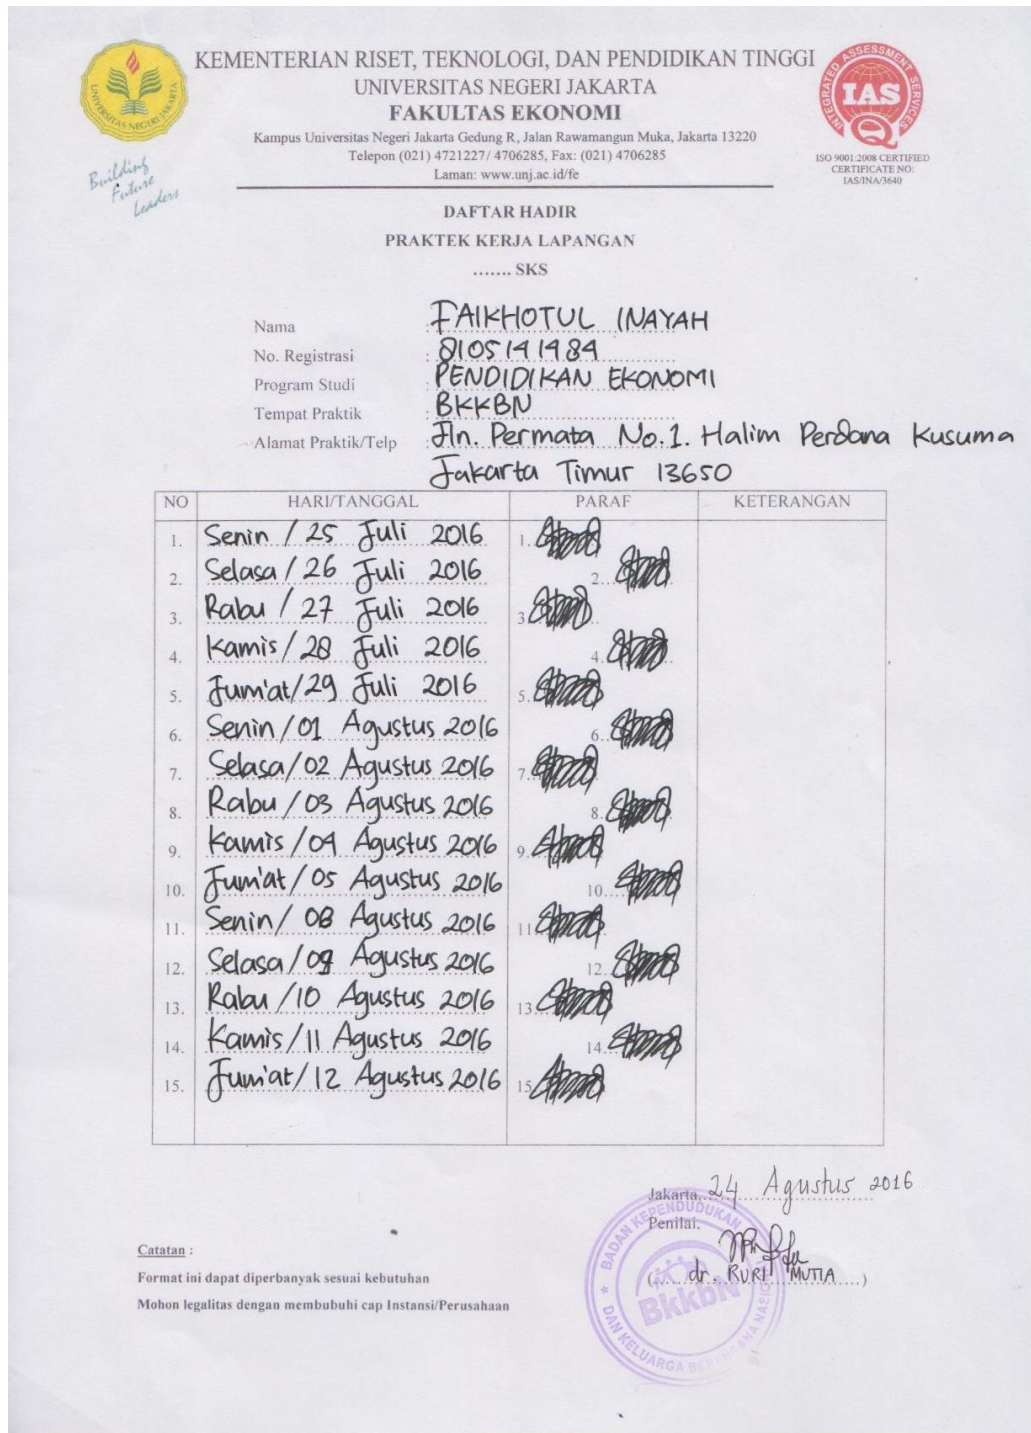 KEMENTERIAN RISET, TEKNOLOGI, DAN PENDIDIKAN TINGGI
UNIVERSITAS NEGERI JAKARTA
FAKULTAS EKONOMI
Kampus Universitas Negeri Jakarta Gedung R, Jalan Rawamangun Muka, Jakarta 13220
Telepon (021) 4721227/ 4706285, Fax: (021) 4706285
Laman: www.unj.ac.id/fe
UNIVERSITAS NEGERI JAKARTA
Building
Future
Leaders
INTEGRATED ASSESSMENT SERVICES
IAS
ISO 9001:2008 CERTIFIED
CERTIFICATE NO:
IAS/INA/3640
DAFTAR HADIR
PRAKTEK KERJA LAPANGAN
....... SKS
Nama : FAIKHOTUL INAYAH
No. Registrasi : 8105141984
Program Studi : PENDIDIKAN EKONOMI
Tempat Praktik : BKKBN
Alamat Praktik/Telp : Jln. Permata No.1. Halim Perdana Kusuma
Jakarta Timur 13650
NO HARI/TANGGAL PARAF KETERANGAN
1. Senin / 25 Juli 2016 1.
2. Selasa / 26 Juli 2016 2.
3. Rabu / 27 Juli 2016 3.
4. Kamis / 28 Juli 2016 4.
5. Jum'at/29 Juli 2016 5.
6. Senin/01 Agustus 2016 6.
7. Selasa/02 Agustus 2016 7.
8. Rabu /03 Agustus 2016 8.
9. Kamis /04 Agustus 2016 9.
10. Jum'at/05 Agustus 2016 10.
11. Senin/ 08 Agustus 2016 11.
12. Selasa/09 Agustus 2016 12.
13. Rabu /10 Agustus 2016 13.
14. Kamis/11 Agustus 2016 14.
15. Jum'at/12 Agustus 2016 15.
Jakarta, 24 Agustus 2016
Penilai.
(dr. RURI MUTIA)
BADAN KEPENDUDUKAN
BkkbN
DAN KELUARGA BERENCANA NASIONAL
Catatan :
Format ini dapat diperbanyak sesuai kebutuhan
Mohon legalitas dengan membubuhi cap Instansi/Perusahaan